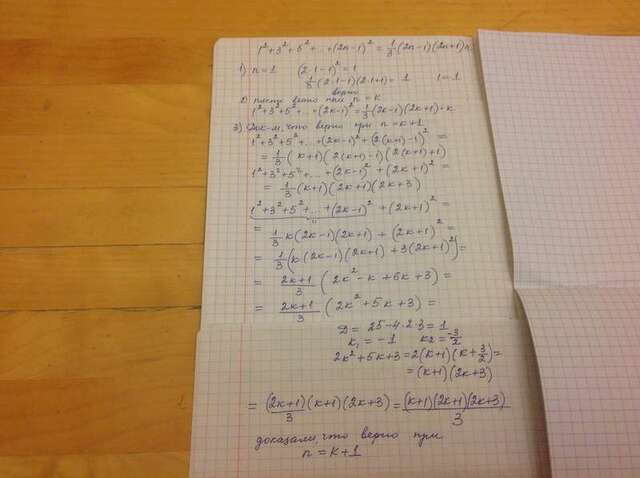 1² + 3² + 5² + ... + (2n-1)² = 1/3 (2n-1)(2n+1)n
1) n = 1 (2·1-1)² = 1
1/3 (2·1-1)(2·1+1) = 1 1=1
верно
2) пусть верно при n = k
1² + 3² + 5² + ... + (2k-1)² = 1/3 (2k-1)(2k+1)·k
3) Док-м, что верно при n = k+1
1² + 3² + 5² + ... + (2k-1)² + (2(k+1)-1)² =
= 1/3 (k+1)(2(k+1)-1)(2(k+1)+1)
1² + 3² + 5² + ... + (2k-1)² + (2k+1)² =
= 1/3 (k+1)(2k+1)(2k+3)
1² + 3² + 5² + ... + (2k-1)² + (2k+1)² =
= 1/3 k(2k-1)(2k+1) + (2k+1)² =
= 1/3 (k(2k-1)(2k+1) + 3(2k+1)²) =
= (2k+1)/3 (2k² - k + 6k + 3) =
= (2k+1)/3 (2k² + 5k + 3) =
D = 25 - 4·2·3 = 1
k₁ = -1 k₂ = -3/2
2k² + 5k + 3 = 2(k+1)(k + 3/2) =
= (k+1)(2k+3)
= (2k+1)/3 (k+1)(2k+3) = (k+1)(2k+1)(2k+3)/3
доказали, что верно при
n = k+1